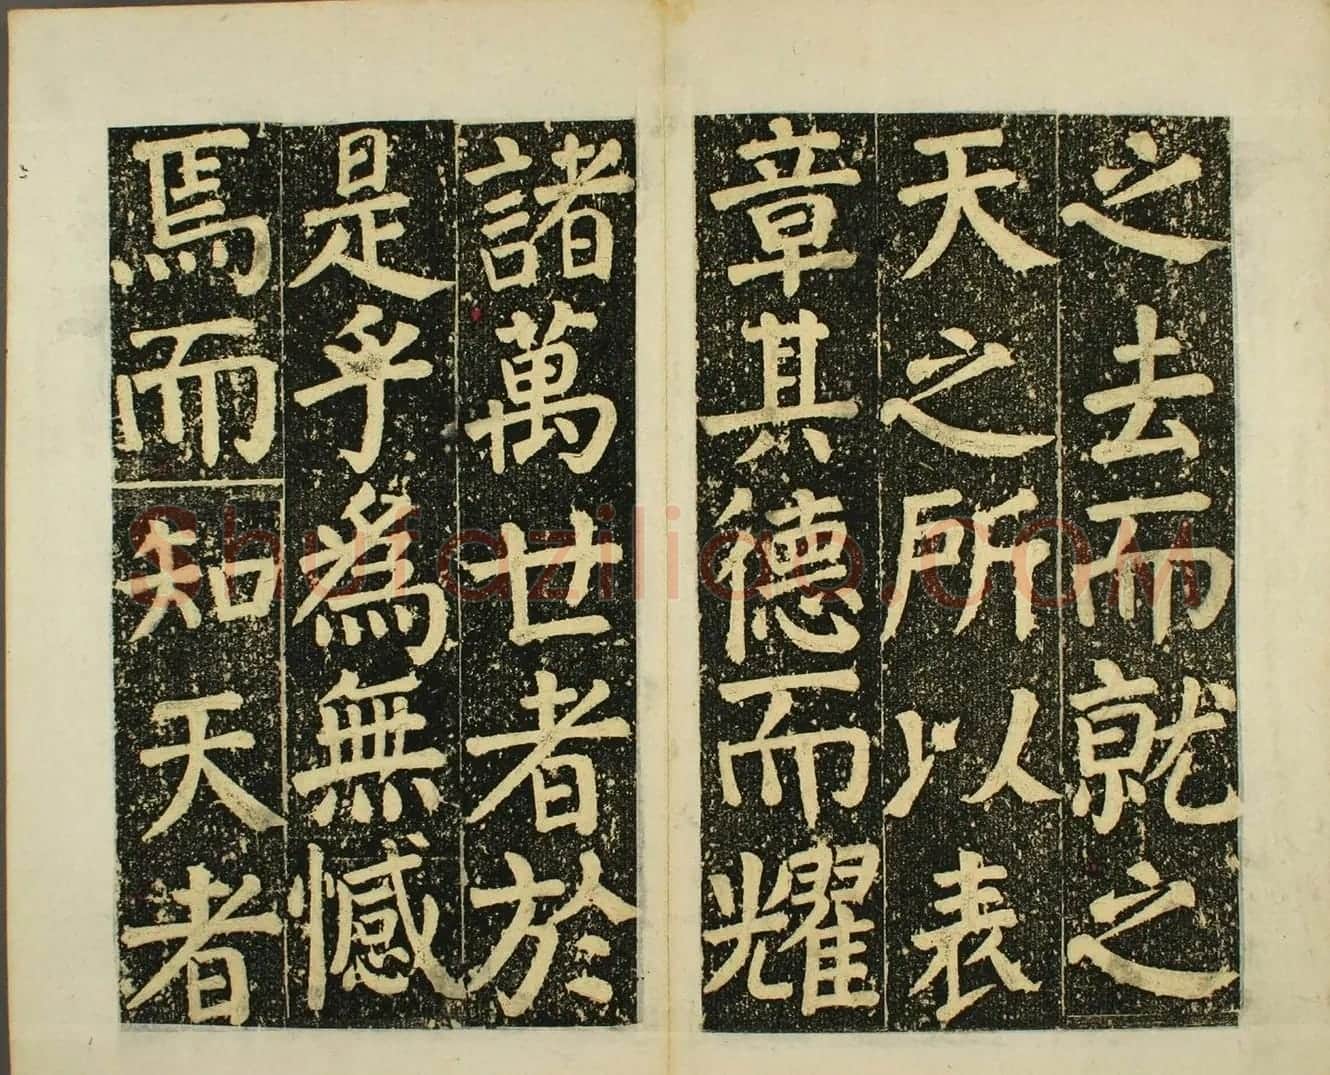 之去而就之
天之所以表
章其德而耀
諸萬世者於
是乎為無憾
焉而知天者
shufaziliao.COM